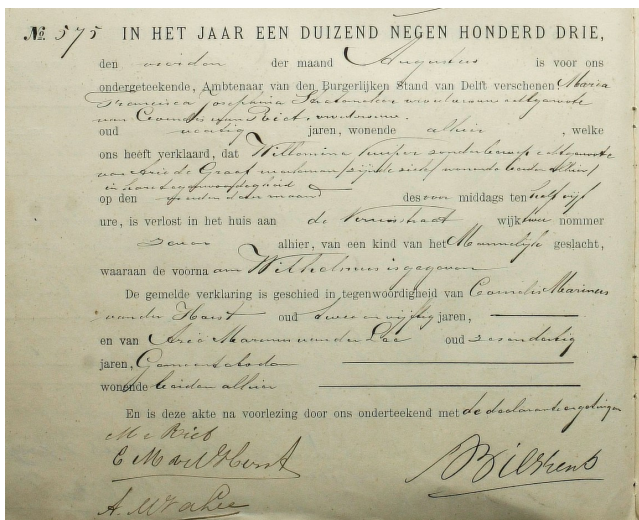 № 575 IN HET JAAR EEN DUIZEND NEGEN HONDERD DRIE,
den der maand Augustus is voor ons
ondergeteekende, Ambtenaar van den Burgerlijken Stand van Delft verschenen: Maria
Francisca Josephina echtgenoote
van Cornelis van Riet, vroedvrouw
oud veertig jaren, wonende alhier, welke
ons heeft verklaard, dat Willemina Kuiper zonder beroep echtgenoote
van Arie de Graaf werkman, zijnde zich wonende beiden alhier,
in haar tegenwoordigheid
op den dezer maand des voor middags ten half vijf
ure, is verlost in het huis aan de straat wijk twee nommer
zeven alhier, van een kind van het Mannelijk geslacht,
waaraan de voorna am Wilhelmus is gegeven
De gemelde verklaring is geschied in tegenwoordigheid van Cornelis Marinus
van der Horst oud twee en vijftig jaren,
en van Arie Marinus van der Lee oud zes en dertig
jaren, Gemeentebode
wonende beiden alhier
En is deze akte na voorlezing door ons onderteekend met de declarante en getuigen
C M vd Horst
A. M. v d Lee